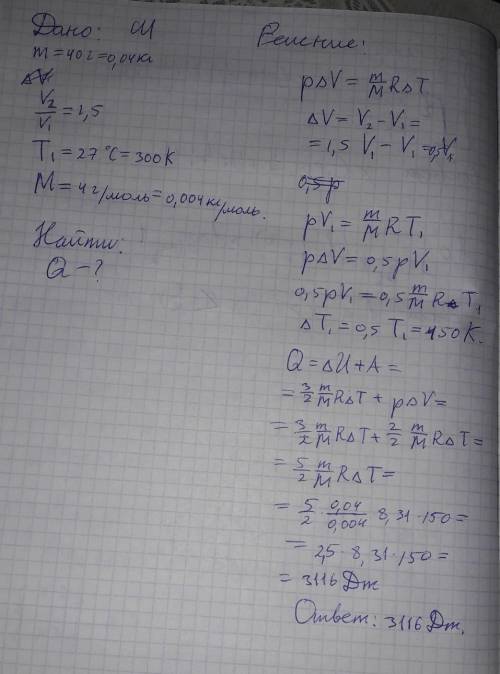 Дано: СИ
m = 40 г = 0,04 кг
ΔV
V₂/V₁ = 1,5
T₁ = 27 °C = 300 K
M = 4 г/моль = 0,004 кг/моль.
Найти:
Q - ?
Решение:
pΔV = m/M RΔT
ΔV = V₂ - V₁ =
= 1,5 V₁ - V₁ = 0,5V₁
0,5p
pV₁ = m/M RT₁
pΔV = 0,5pV₁
0,5pV₁ = 0,5 m/M R T₁
ΔT₁ = 0,5 T₁ = 150 K.
Q = ΔU + A =
= 3/2 m/M RΔT + pΔV =
= 3/2 m/M RΔT + 2/2 m/M RΔT =
= 5/2 m/M RΔT =
= 5/2 · 0,04/0,004 · 8,31 · 150 =
= 2,5 · 8,31 · 150 =
= 3116 Дж
Ответ: 3116 Дж.